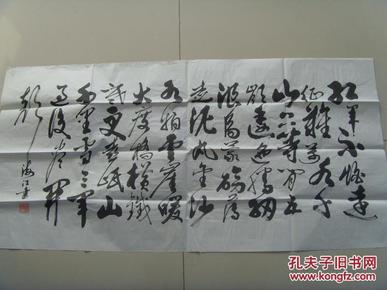 红军不怕远
征难万水千
山只等闲五
岭逶迤腾细
浪乌蒙磅礴
走泥丸金沙
水拍云崖暖
大渡桥横铁
索寒更喜岷山
千里雪三军
过后尽开
颜 海江书
孔夫子旧书网